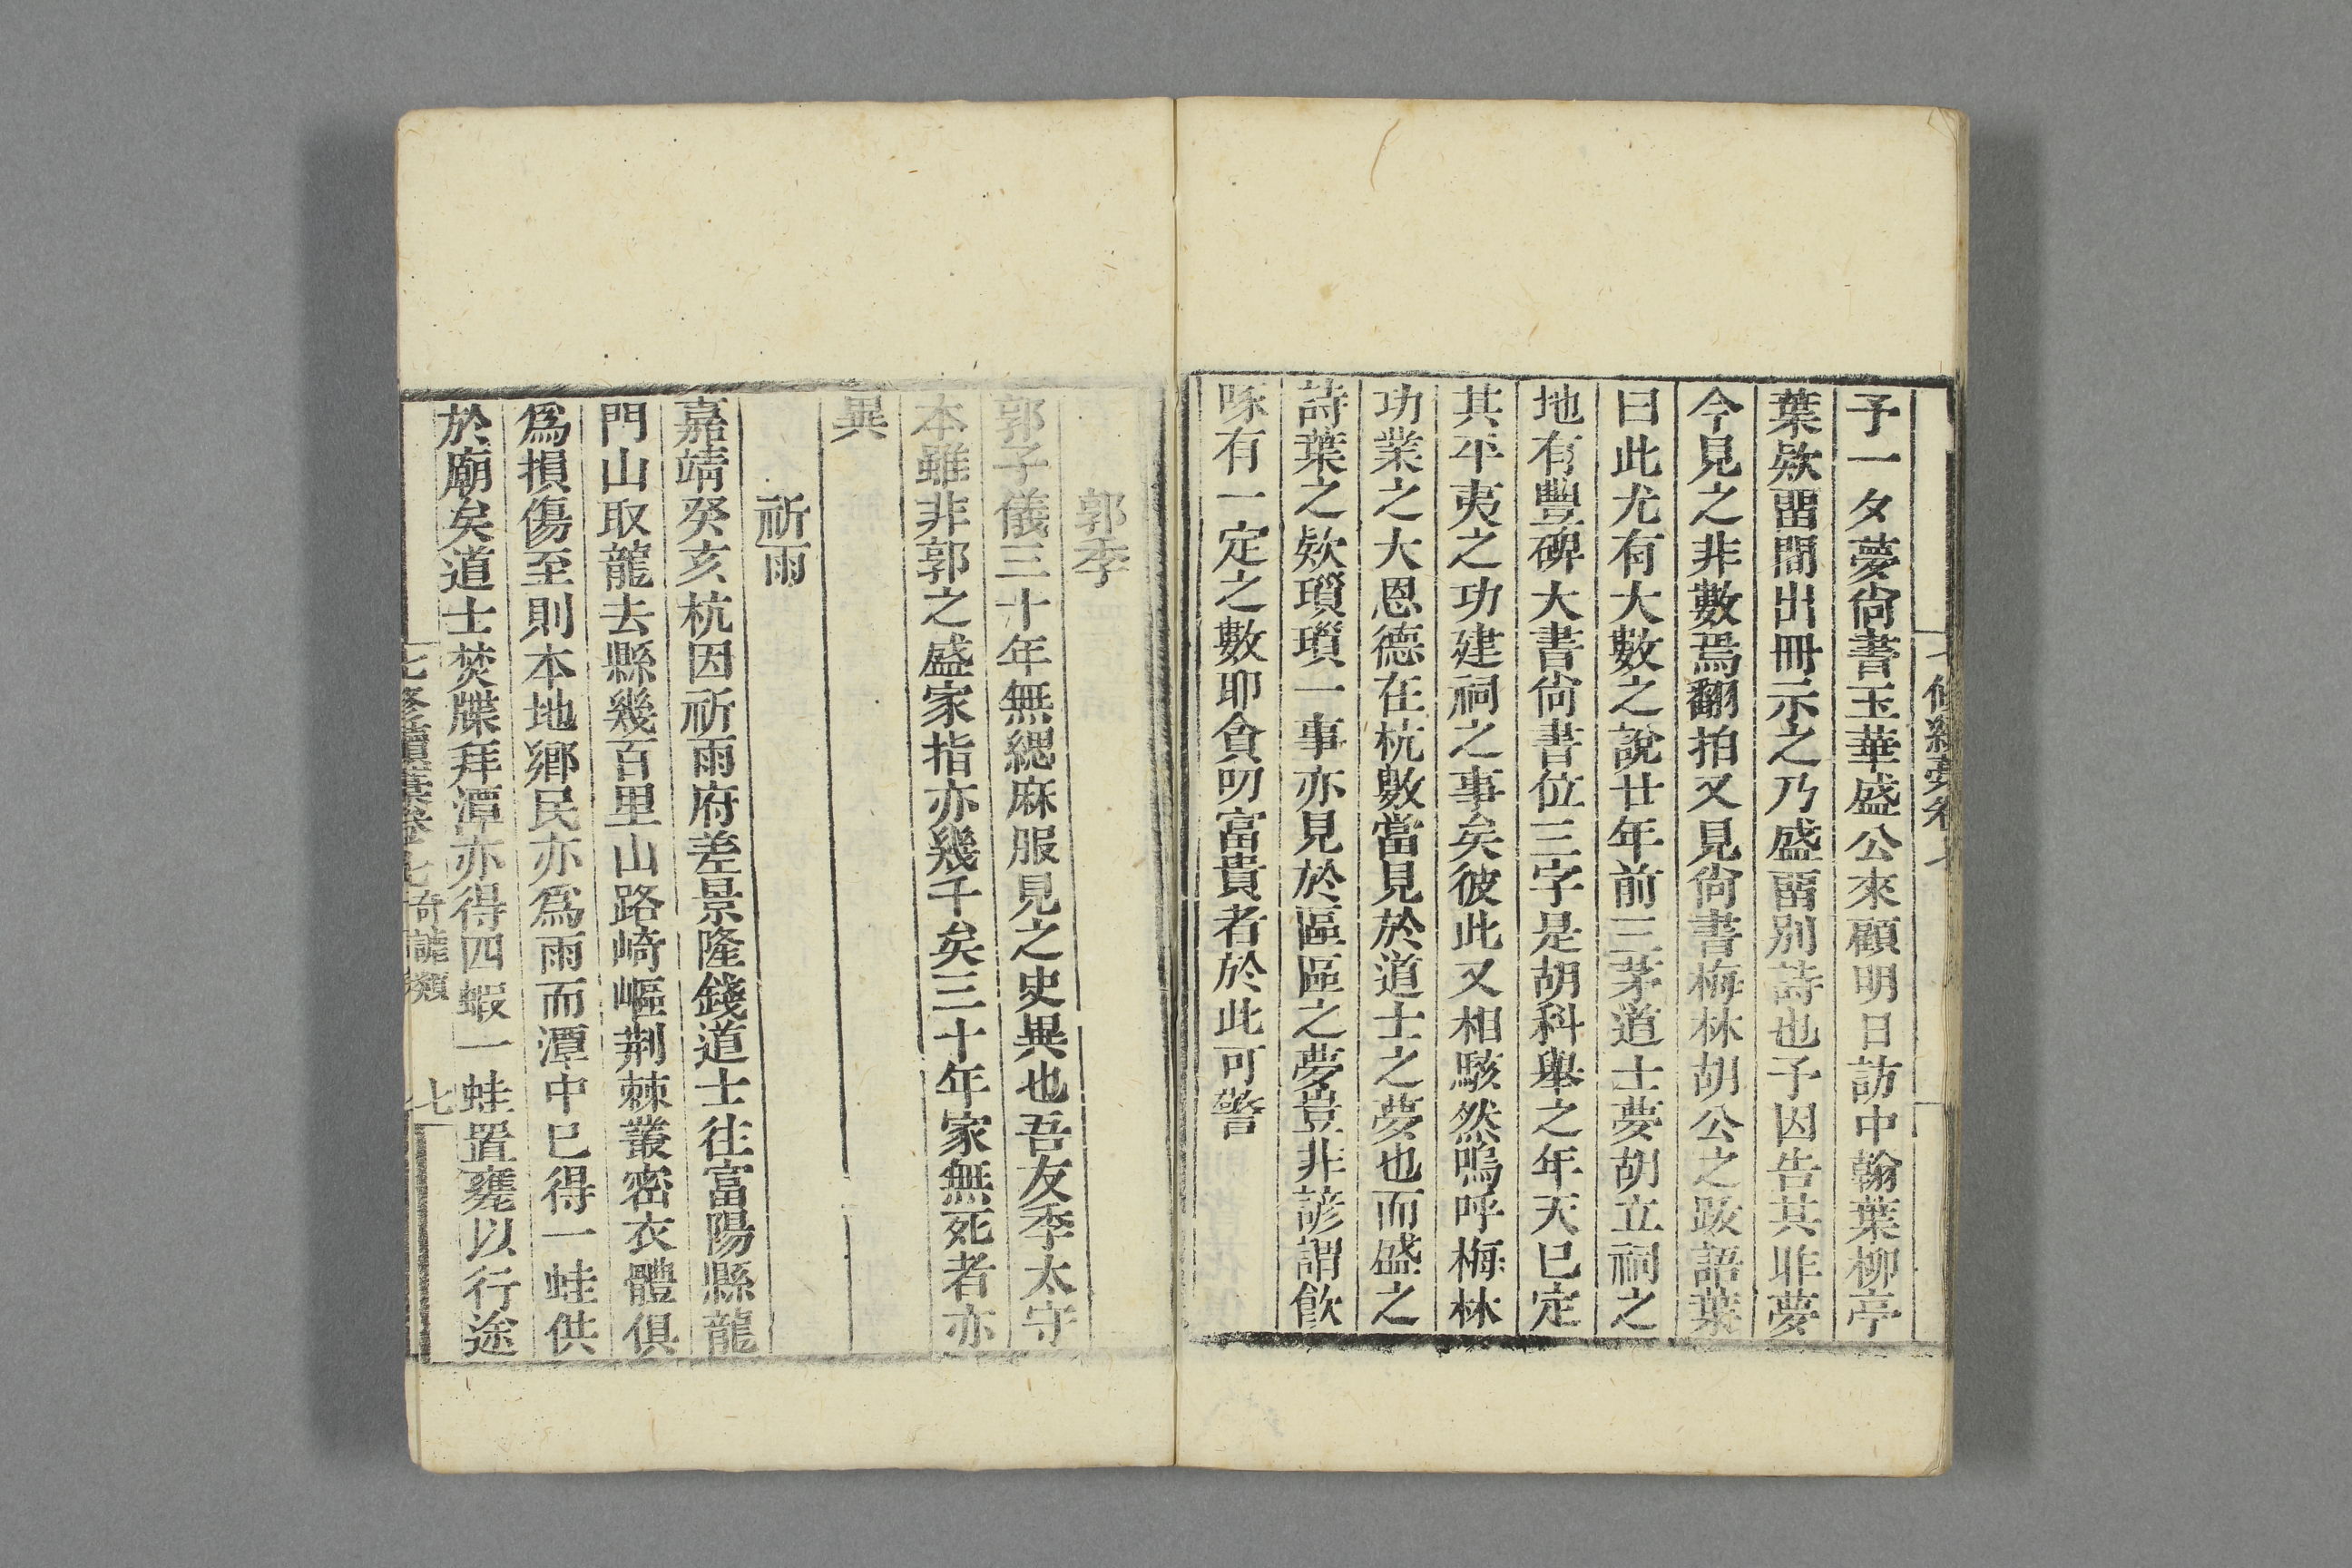 予一夕夢尙書玉華盛公來顧明日訪中翰葉柳亭
葉欵畱間出冊示之乃盛畱別詩也予因告其昨夢
今見之非數焉翻拍又見尙書梅林胡公之跋語葉
曰此尤有大數之說廿年前三茅道士夢胡立祠之
地有豐碑大書尙書位三字是胡科舉之年天巳定
其平夷之功建祠之事矣彼此又相駭然嗚呼梅林
功業之大恩德在杭數當見於道士之夢也而盛之
詩葉之欵瑣瑣一事亦見於區區之夢豈非諺謂飮
啄有一定之數耶貪叨富貴者於此可警
郭季
郭子儀三十年無緦麻服見之史異也吾友季太守
本雖非郭之盛家指亦幾千矣三十年家無死者亦
異
祈雨
嘉靖癸亥杭因祈雨府差景隆錢道士往富陽縣龍
門山取龍去縣幾百里山路崎嶇荆棘叢密衣體俱
爲損傷至則本地鄉民亦爲雨而潭中巳得一蛙供
於廟矣道士焚牒拜潭亦得四蝦一蛙置甕以行途
七修續稾卷七奇謔類 七